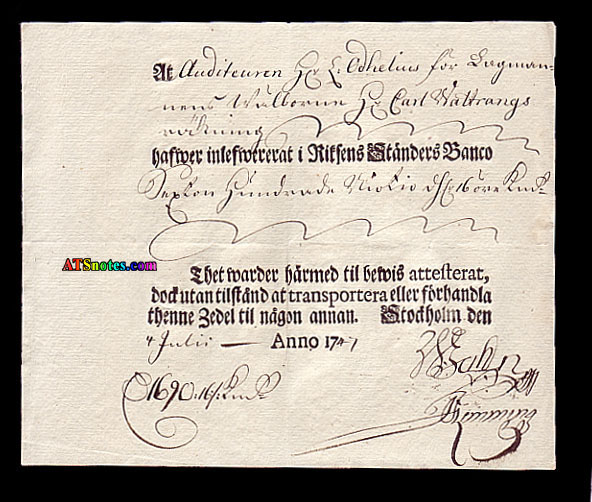 At Auditeuren Hr L. Odhelius för Lagman-
nens Wälborne Hr Carl Wattrangs
räkning
hafwer inlefwererat i Riksens Ständers Banco
Sexton Hundrade Niotio dr 16 öre Kmt
ATSnotes.com
Thet warder härmed til bewis attesterat,
dock utan tilstånd at transportera eller förhandla
thenne Zedel til någon annan. Stockholm den
4 Julii Anno 1747
1690:16 Kmt